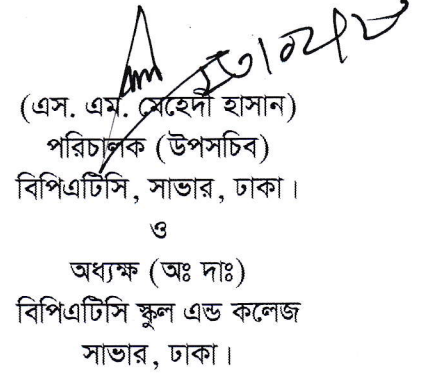 (এস. এম. মেহেদী হাসান)
পরিচালক (উপসচিব)
বিপিএটিসি, সাভার, ঢাকা।
ও
অধ্যক্ষ (অঃ দাঃ)
বিপিএটিসি স্কুল এন্ড কলেজ
সাভার, ঢাকা।